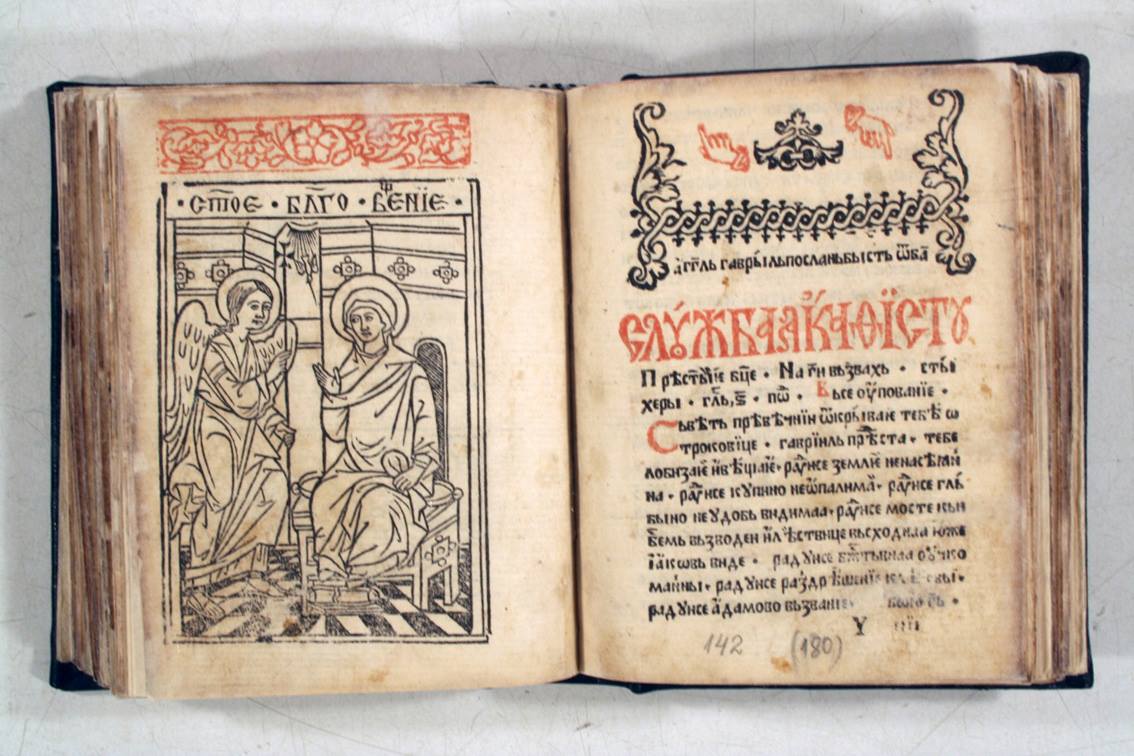 СТОЕ · БЛГО · ВЕНЇЕ ·
агг҃ль гавры́ильпосланьбысть ѿба
СЛУ́ЖБААКАѲЇСТУ
Прѣст҃ыѥ бц҃е · На г҃и възвахь · ст҃ы
херы · гл҃ь, · по҆ · Высе оупованїе ·
Съвѣть прѣвѣчнїи ѿкрываѥ тебѣ ѡ
троковїце · гаврїиль прѣста · тебе
лобизаѥ и вѣщаѥ · раꙋисе землѥ ненасѣꙗн
на · раꙋисе купино неѡпалима · раꙋисе глꙋ
быно неудобь видимаа · раꙋисе мосте кьн
бемь възводеи и лѣствице въсходила юже
ꙗковь виде · радуисе бж҃тьвнаа ручко
манны · радуисе раздрѣшенїе клетвы ·
радуисе адамово възванїе ·
142 (180)